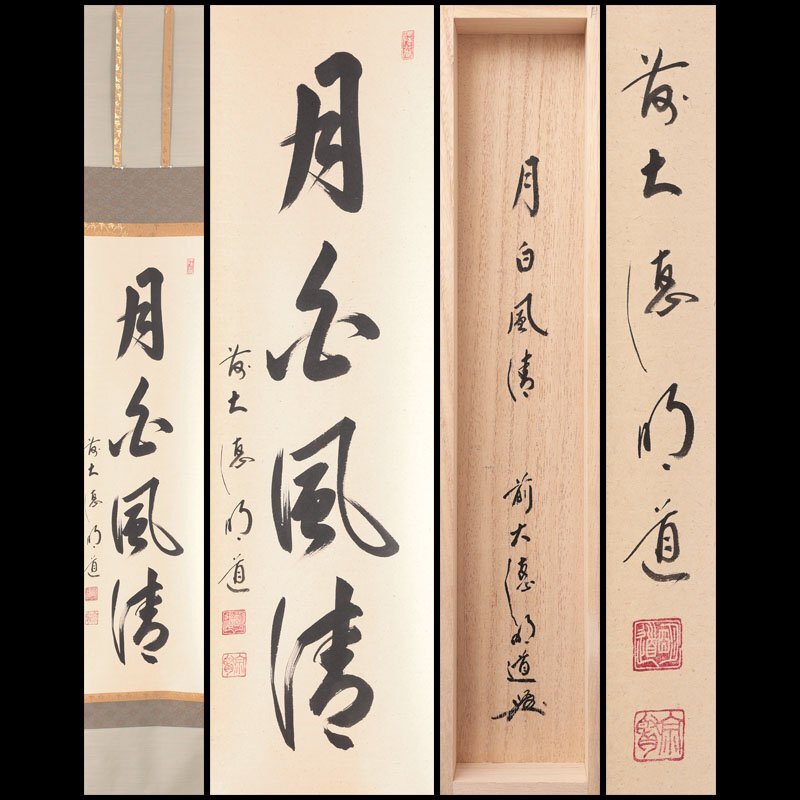 月白風清
前大徳明道
月白風清
前大徳明道
月白風清
前大徳明道
前大徳明道